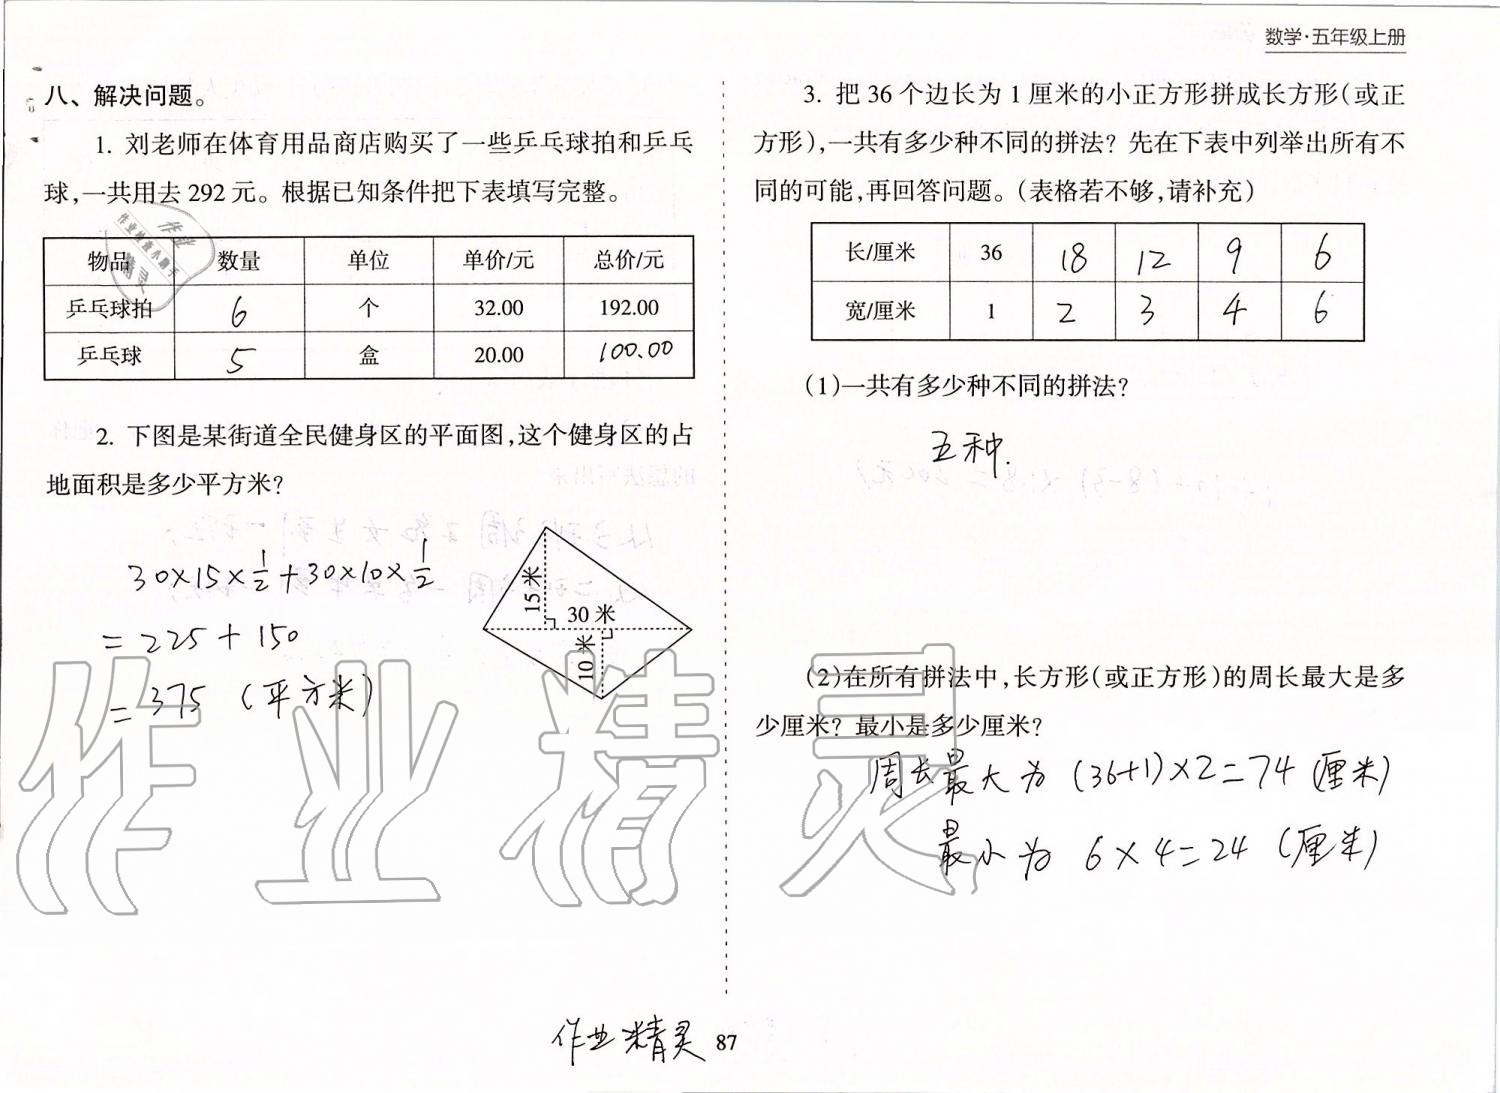 数学·五年级上册
八、解决问题。
1. 刘老师在体育用品商店购买了一些乒乓球拍和乒乓
球,一共用去 292 元。根据已知条件把下表填写完整。
物品 数量 单位 单价/元 总价/元
乒乓球拍 6 个 32.00 192.00
乒乓球 5 盒 20.00 100.00
2. 下图是某街道全民健身区的平面图,这个健身区的占
地面积是多少平方米?
30×15×1/2+30×10×1/2
=225+150
=375 (平方米)
15米
30 米
10 米
3. 把 36 个边长为 1 厘米的小正方形拼成长方形(或正
方形),一共有多少种不同的拼法? 先在下表中列举出所有不
同的可能,再回答问题。(表格若不够,请补充)
长/厘米 36 18 12 9 6
宽/厘米 1 2 3 4 6
(1)一共有多少种不同的拼法?
五种.
(2)在所有拼法中,长方形(或正方形)的周长最大是多
少厘米? 最小是多少厘米?
周长最大为 (36+1)×2=74 (厘米)
最小为 6×4=24 (厘米)
作业精灵
作业精灵
87
作业
作业检查小助手
精灵